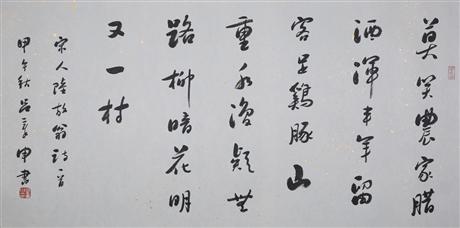 莫笑農家腊
酒渾丰年留
客足鷄豚山
重水復疑無
路柳暗花明
又一村
宋人陸放翁詩
甲午秋吕章申書